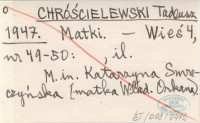 o CHRÓŚCIELEWSKI Tadeusz
1947. Matki. – Wieś 4,
nr 49-50: , il.
M.in. Katarzyna Smre-
czyńska (matka Wład. Orkana).